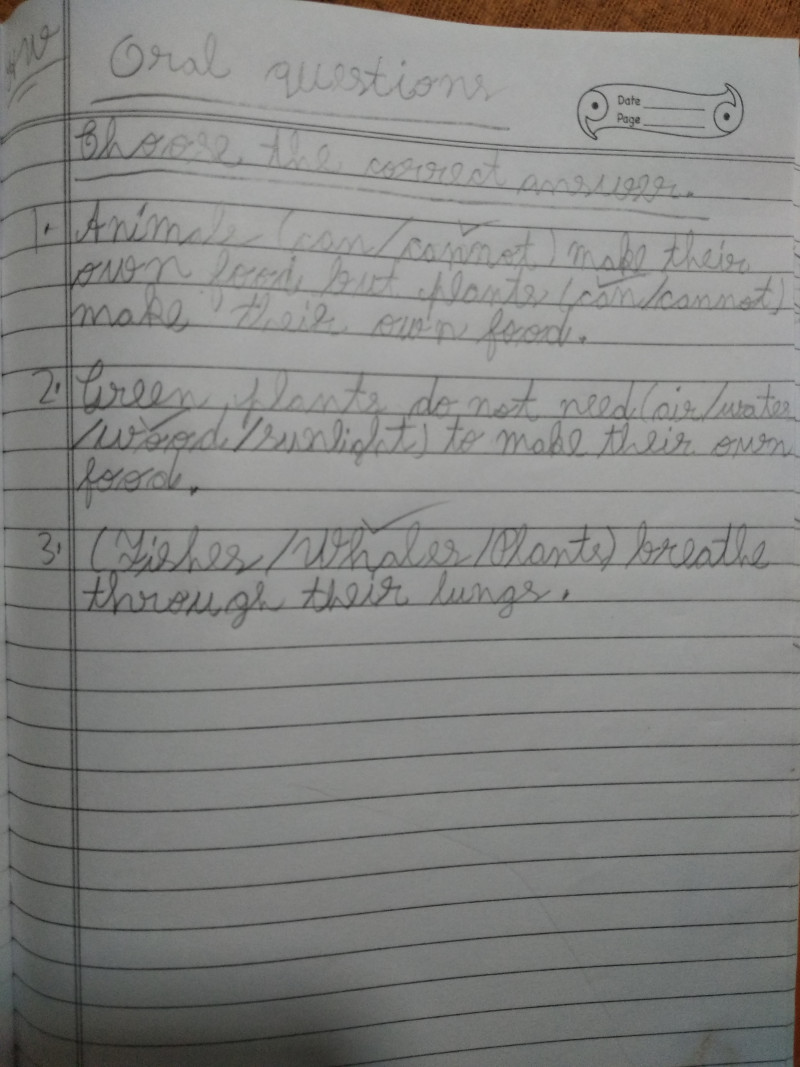 HW
Oral questions
Date
Page
Choose the correct answer.
1. Animals (can/cannot) make their
own food, but plants (can/cannot)
make their own food.
2. Green plants do not need (air/water
/wood/sunlight) to make their own
food.
3. (Fishes/Whales/Plants) breathe
through their lungs.